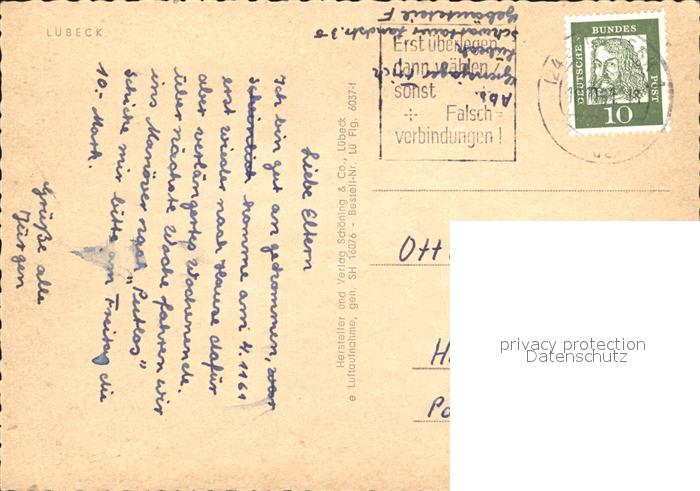 LÜBECK
Liebe Eltern
Ich bin gut an gekommen,
komme am 4.1161
erst wieder nach Hause dafür
aber verlängertes Wochenende.
über nächste Woche fahren wir
ins Manöver nach "Putlos"
Schicke mir bitte am Freitag die
10.- Mark.
Grüße alle
Jürgen
Hersteller und Verlag Schöning & Co., Lübeck
e Luftaufnahme, gen. SH 16076 - Bestell-Nr. Lü Flg. 6037-f
Abs.
Lübeck
Schwartauer Landstr.
Gebäudeteil F
Erst überlegen,
dann wählen /
sonst
Falsch=
verbindungen!
(24
DEUTSCHE BUNDESPOST
10
Ott
H
Po
privacy protection
Datenschutz